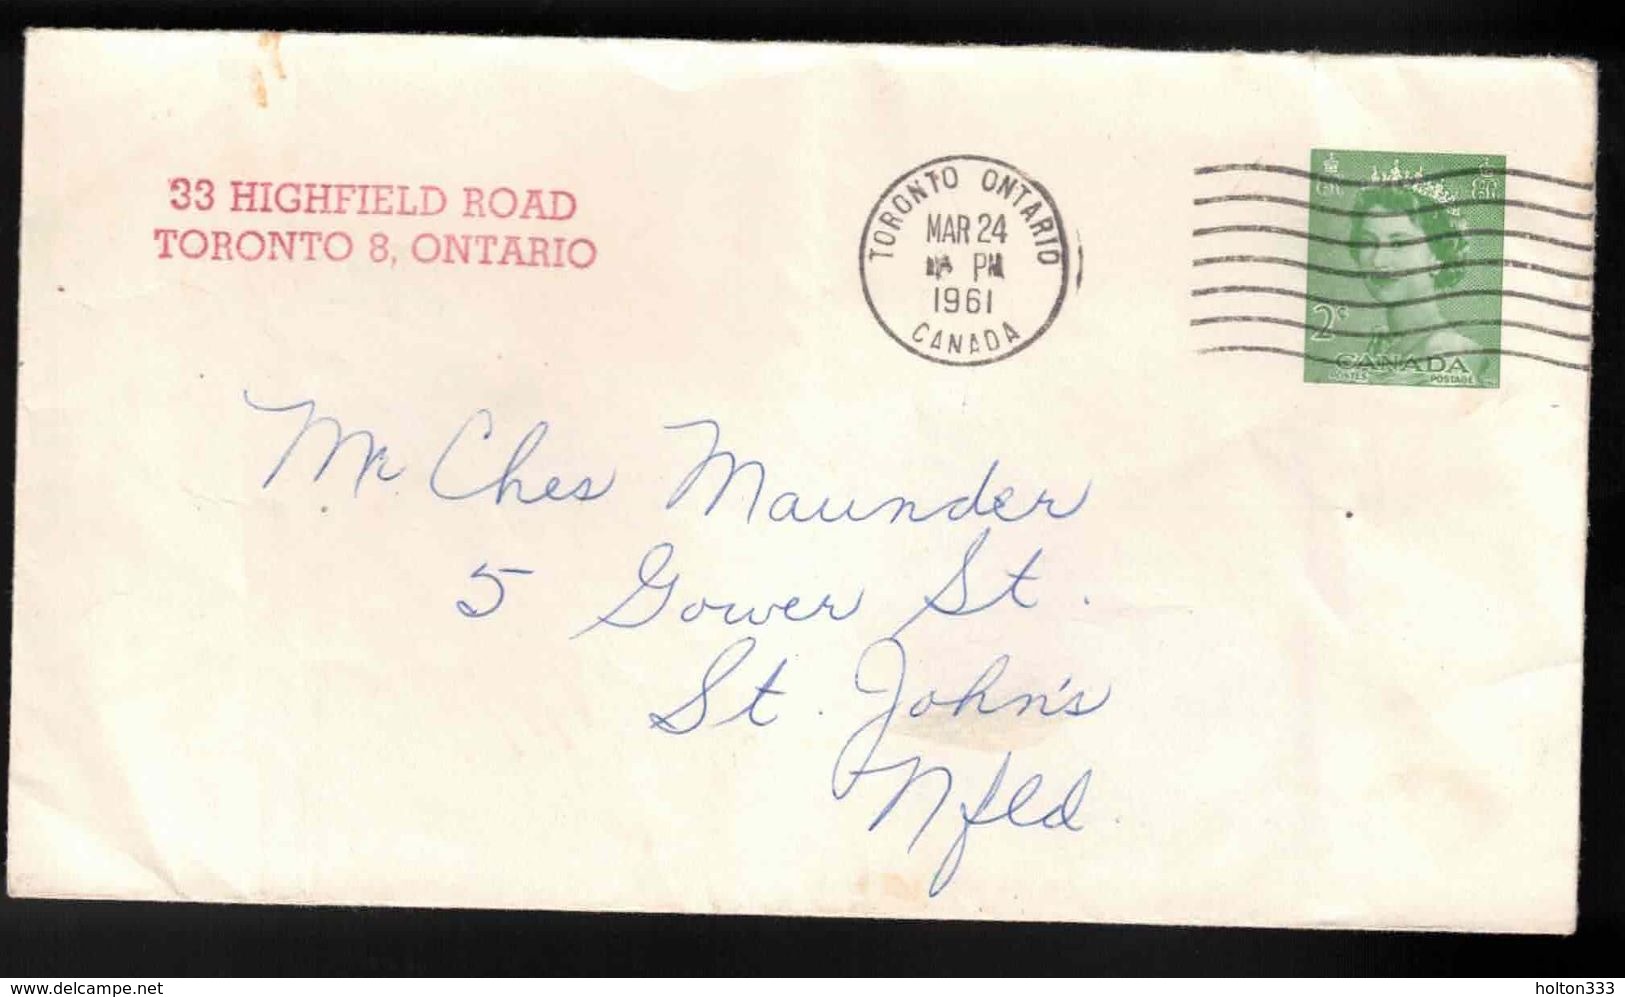 33 HIGHFIELD ROAD
TORONTO 8, ONTARIO
TORONTO ONTARIO
MAR 24
PM
1961
CANADA
2¢
CANADA
POSTES POSTAGE
Mr. Ches Maunder
5 Gower St.
St. John's
Nfld.
www.delcampe.net
holton333